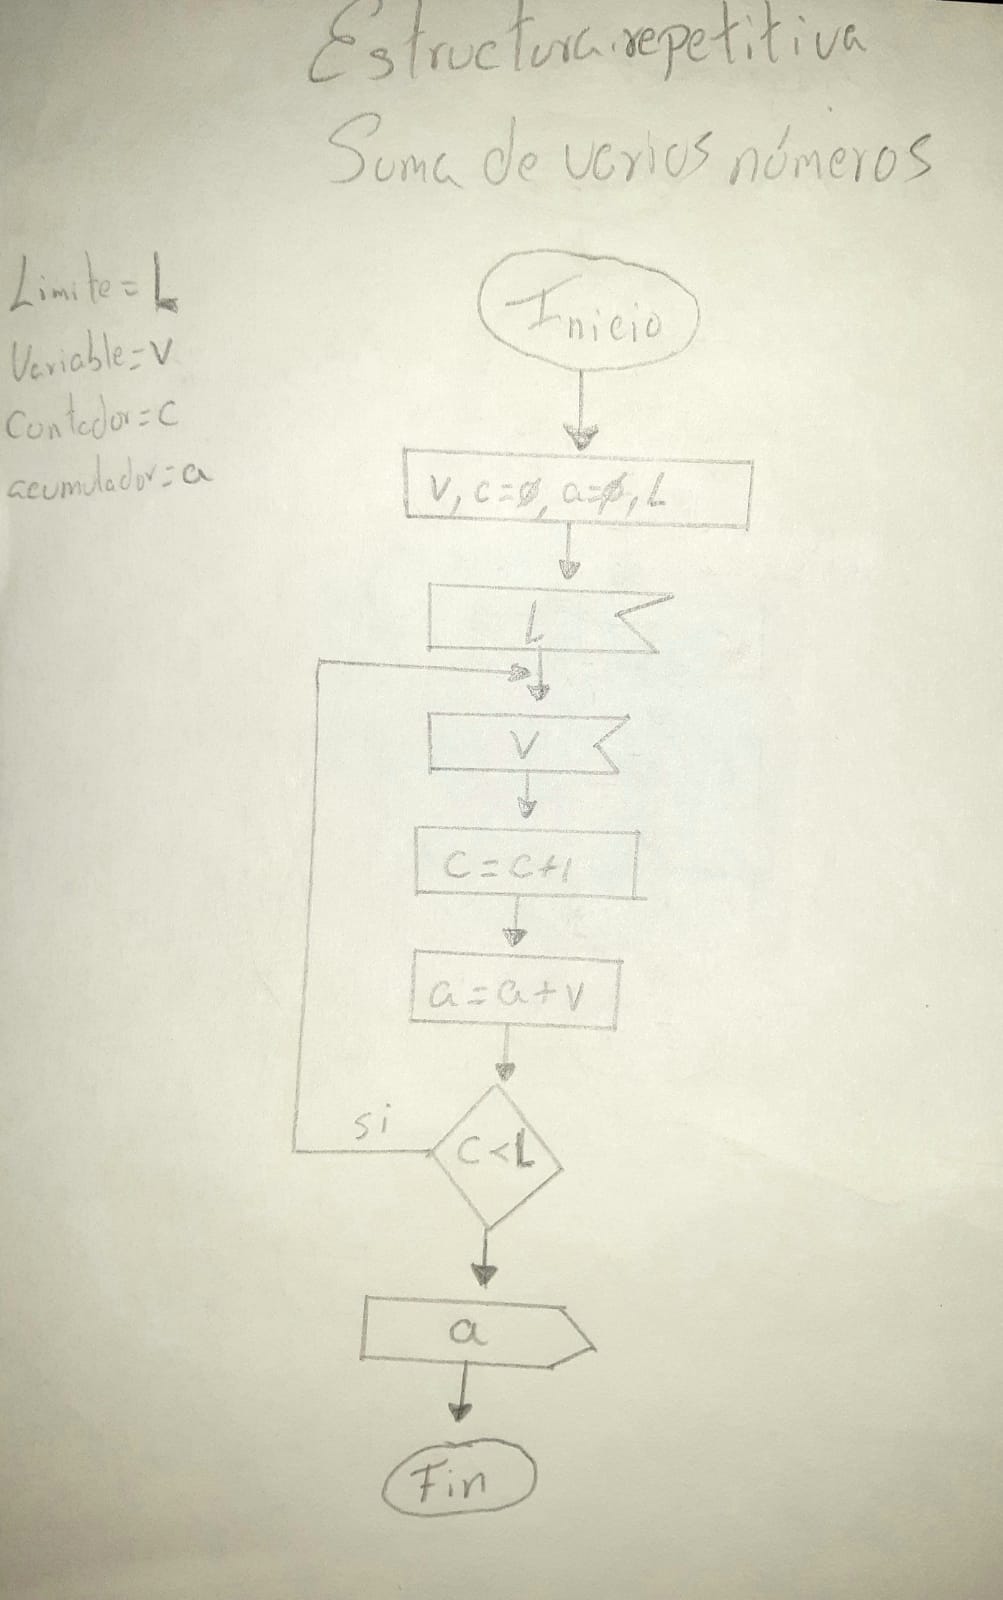 Estructura repetitiva
Suma de varios números
Limite = L
Variable = V
Contador = C
acumulador = a
Inicio
V, c=ø, a=ø, L
L
V
C = C+1
a = a+v
si
C<L
a
Fin